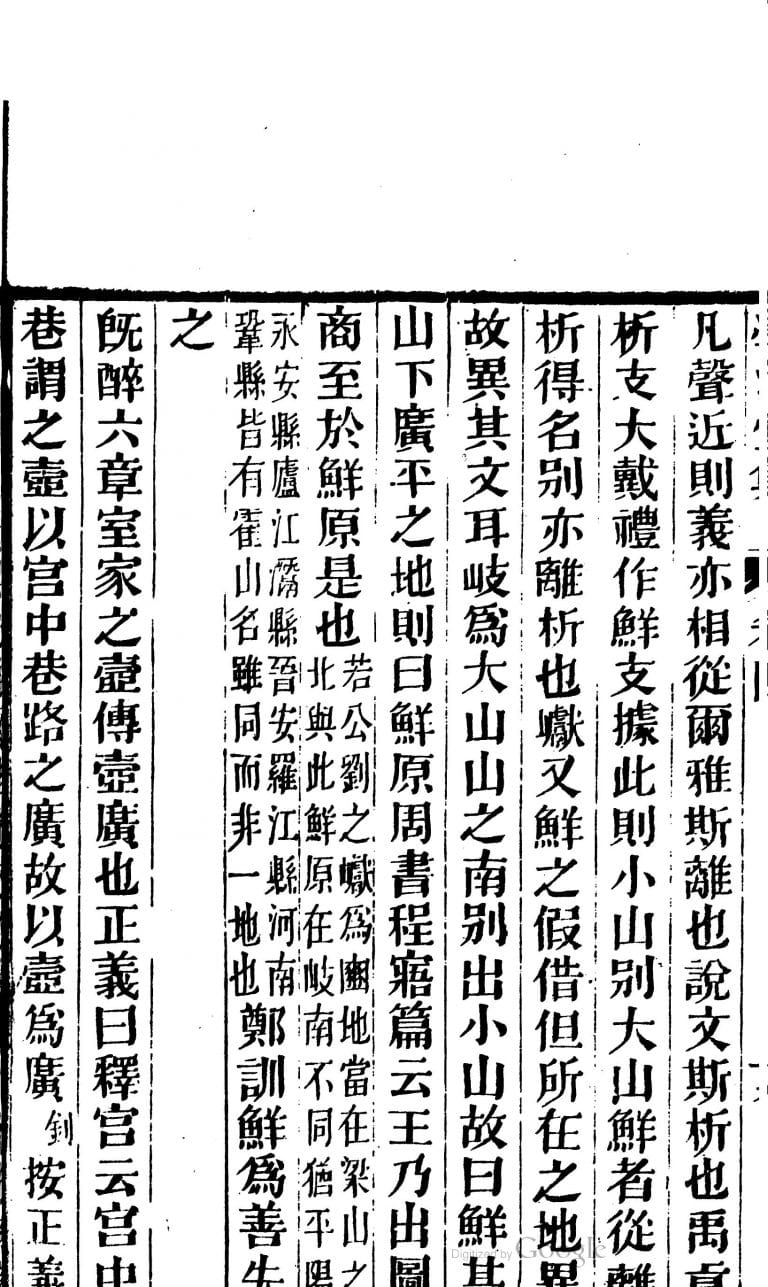 凡聲近則義亦相從爾雅斯離也說文斯析也禹貢
析支大戴禮作鮮支據此則小山別大山鮮者從離
析得名別亦離析也巘又鮮之假借但所在之地異
故異其文耳岐爲大山山之南別出小山故曰鮮其
山下廣平之地則曰鮮原周書程寤篇云王乃出圖
商至於鮮原是也
若公劉之巘爲豳地當在梁山之
北與此鮮原在岐南不同猶平陽
永安縣廬江灊縣晉安羅江縣河南
鞏縣皆有霍山名雖同而非一地也
鄭訓鮮爲善失
之
旣醉六章室家之壼傳壼廣也正義曰釋宮云宮中
巷謂之壼以宮中巷路之廣故以壼爲廣
釗
按正義
Digitized by Google